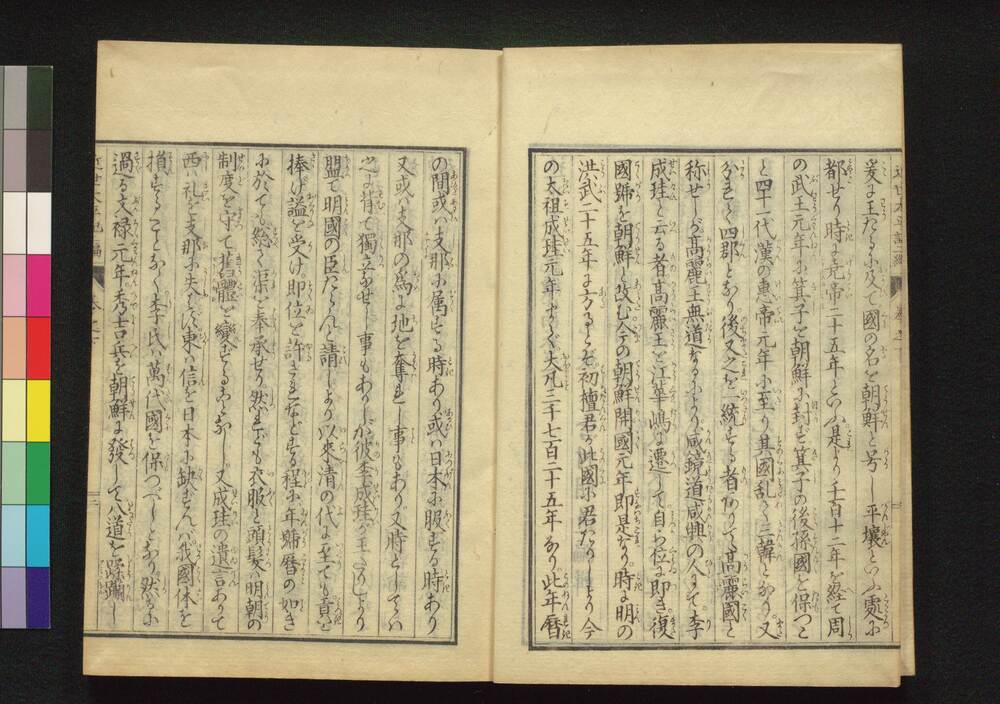 爰に王たるに及て國の名を朝鮮と号し平壌といふ處に
都せり時に堯帝二十五年といふ是より千百十二年を經て周
の武王元年に箕子を朝鮮に封ず箕子の後孫國を保つこ
と四十一代漢の惠帝元年に至り其國乱て三韓となり又
分れて四郡となり後又之を一統する者ありて高麗國と
称せしが高麗王無道なるにより咸鏡道咸興の人にて李
成珪と云る者高麗王を江華嶋に遷して自ら位に即き復
國號を朝鮮と改む今の朝鮮開國元年即是なり時に明の
洪武二十五年に方るとぞ初檀君が此國に君たりしより今
の太祖成珪元年まで大凡三千七百二十五年なり此年暦
の間或ハ支那に属する時あり或ハ日本に服する時あり
又或ハ支那の為に地を奪れし事もあり又時としてハ
之に背て獨立なせし事もありしが彼李成珪が王たりしより
盟て明國の臣たらんと請しより以來清の代に至ても貢を
捧げ謚を受け即位を許さるゝなどする程に年號暦の如き
に於ても総て渠を奉承せり然れども衣服と頭髪ハ明朝の
制度を守て舊體を變ずることなし又成珪の遺言ありて
西ハ礼を支那に失ハず東ハ信を日本に缺ずんバ我國体を
損することなく李氏ハ萬代國を保つべしとあり然るに
過る文禄元年秀吉兵を朝鮮に發して八道を蹂躙し